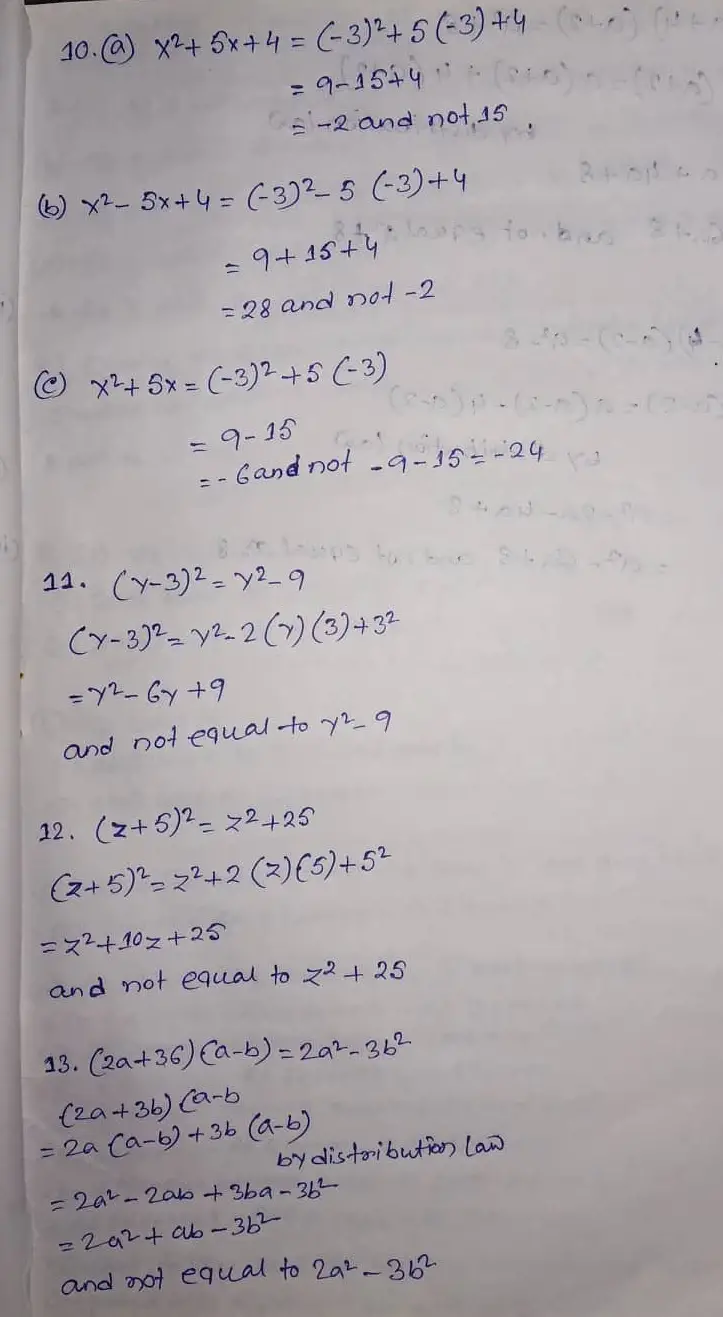 10.(a) x²+ 5x+4 = (-3)²+5(-3)+4
= 9-15+4
= -2 and not 15.
(b) x²- 5x+4 = (-3)²-5 (-3)+4
= 9+15+4
= 28 and not -2
(c) x²+5x = (-3)²+5 (-3)
= 9-15
= -6 and not -9-15 = -24
11. (y-3)² = y²-9
(y-3)² = y²-2(y)(3)+3²
= y²-6y+9
and not equal to y²-9
12. (z+5)² = z²+25
(z+5)² = z²+2 (z)(5)+5²
= z²+10z+25
and not equal to z²+25
13. (2a+36)(a-b) = 2a²-3b²
(2a+3b)(a-b
= 2a (a-b)+3b (a-b)
by distribution law
= 2a²-2ab+3ba-3b²
= 2a²+ab-3b²
and not equal to 2a²-3b²